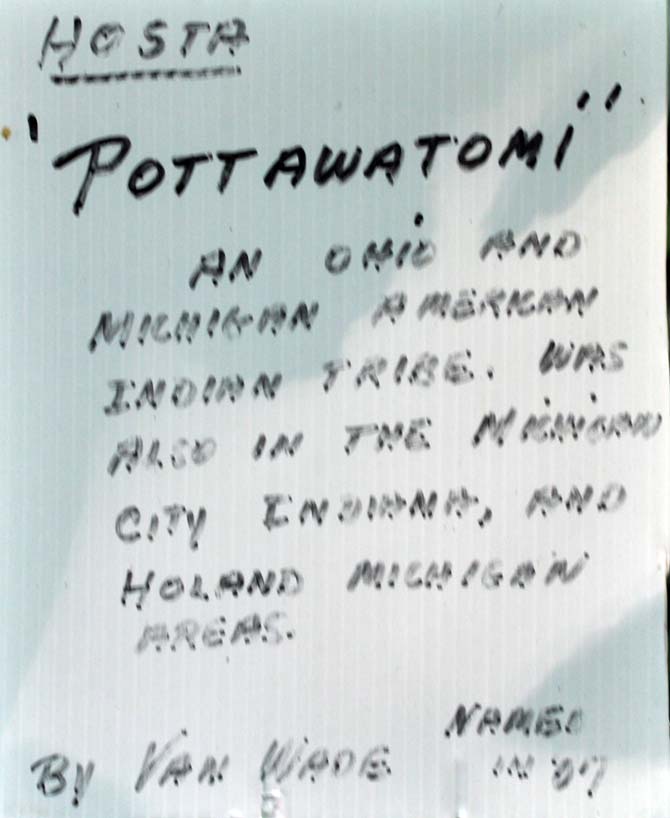 HOSTA
"POTTAWATOMI"
AN OHIO AND
MICHIGAN AMERICAN
INDIAN TRIBE. WAS
ALSO IN THE MICHIGAN
CITY INDIANA, AND
HOLAND MICHIGAN
AREAS.
NAMED
BY VAN WADE IN '07